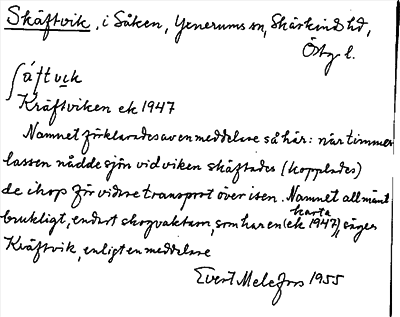 Skäftvik, i Såken, Yxnerums sn, Skärkinds hd,
Östg l.
ʃáftvik
Kräftviken ek 1947
Namnet förklarades av en meddelare så här: när timmer
lassen nådde sjön vid viken skäftades (kopplades)
de ihop för vidare transport över isen. Namnet allmänt
brukligt, endast skogvaktarn, som har en karta (ek 1947), säger
Kräftvik, enligt en meddelare
Evert Melefors 1955